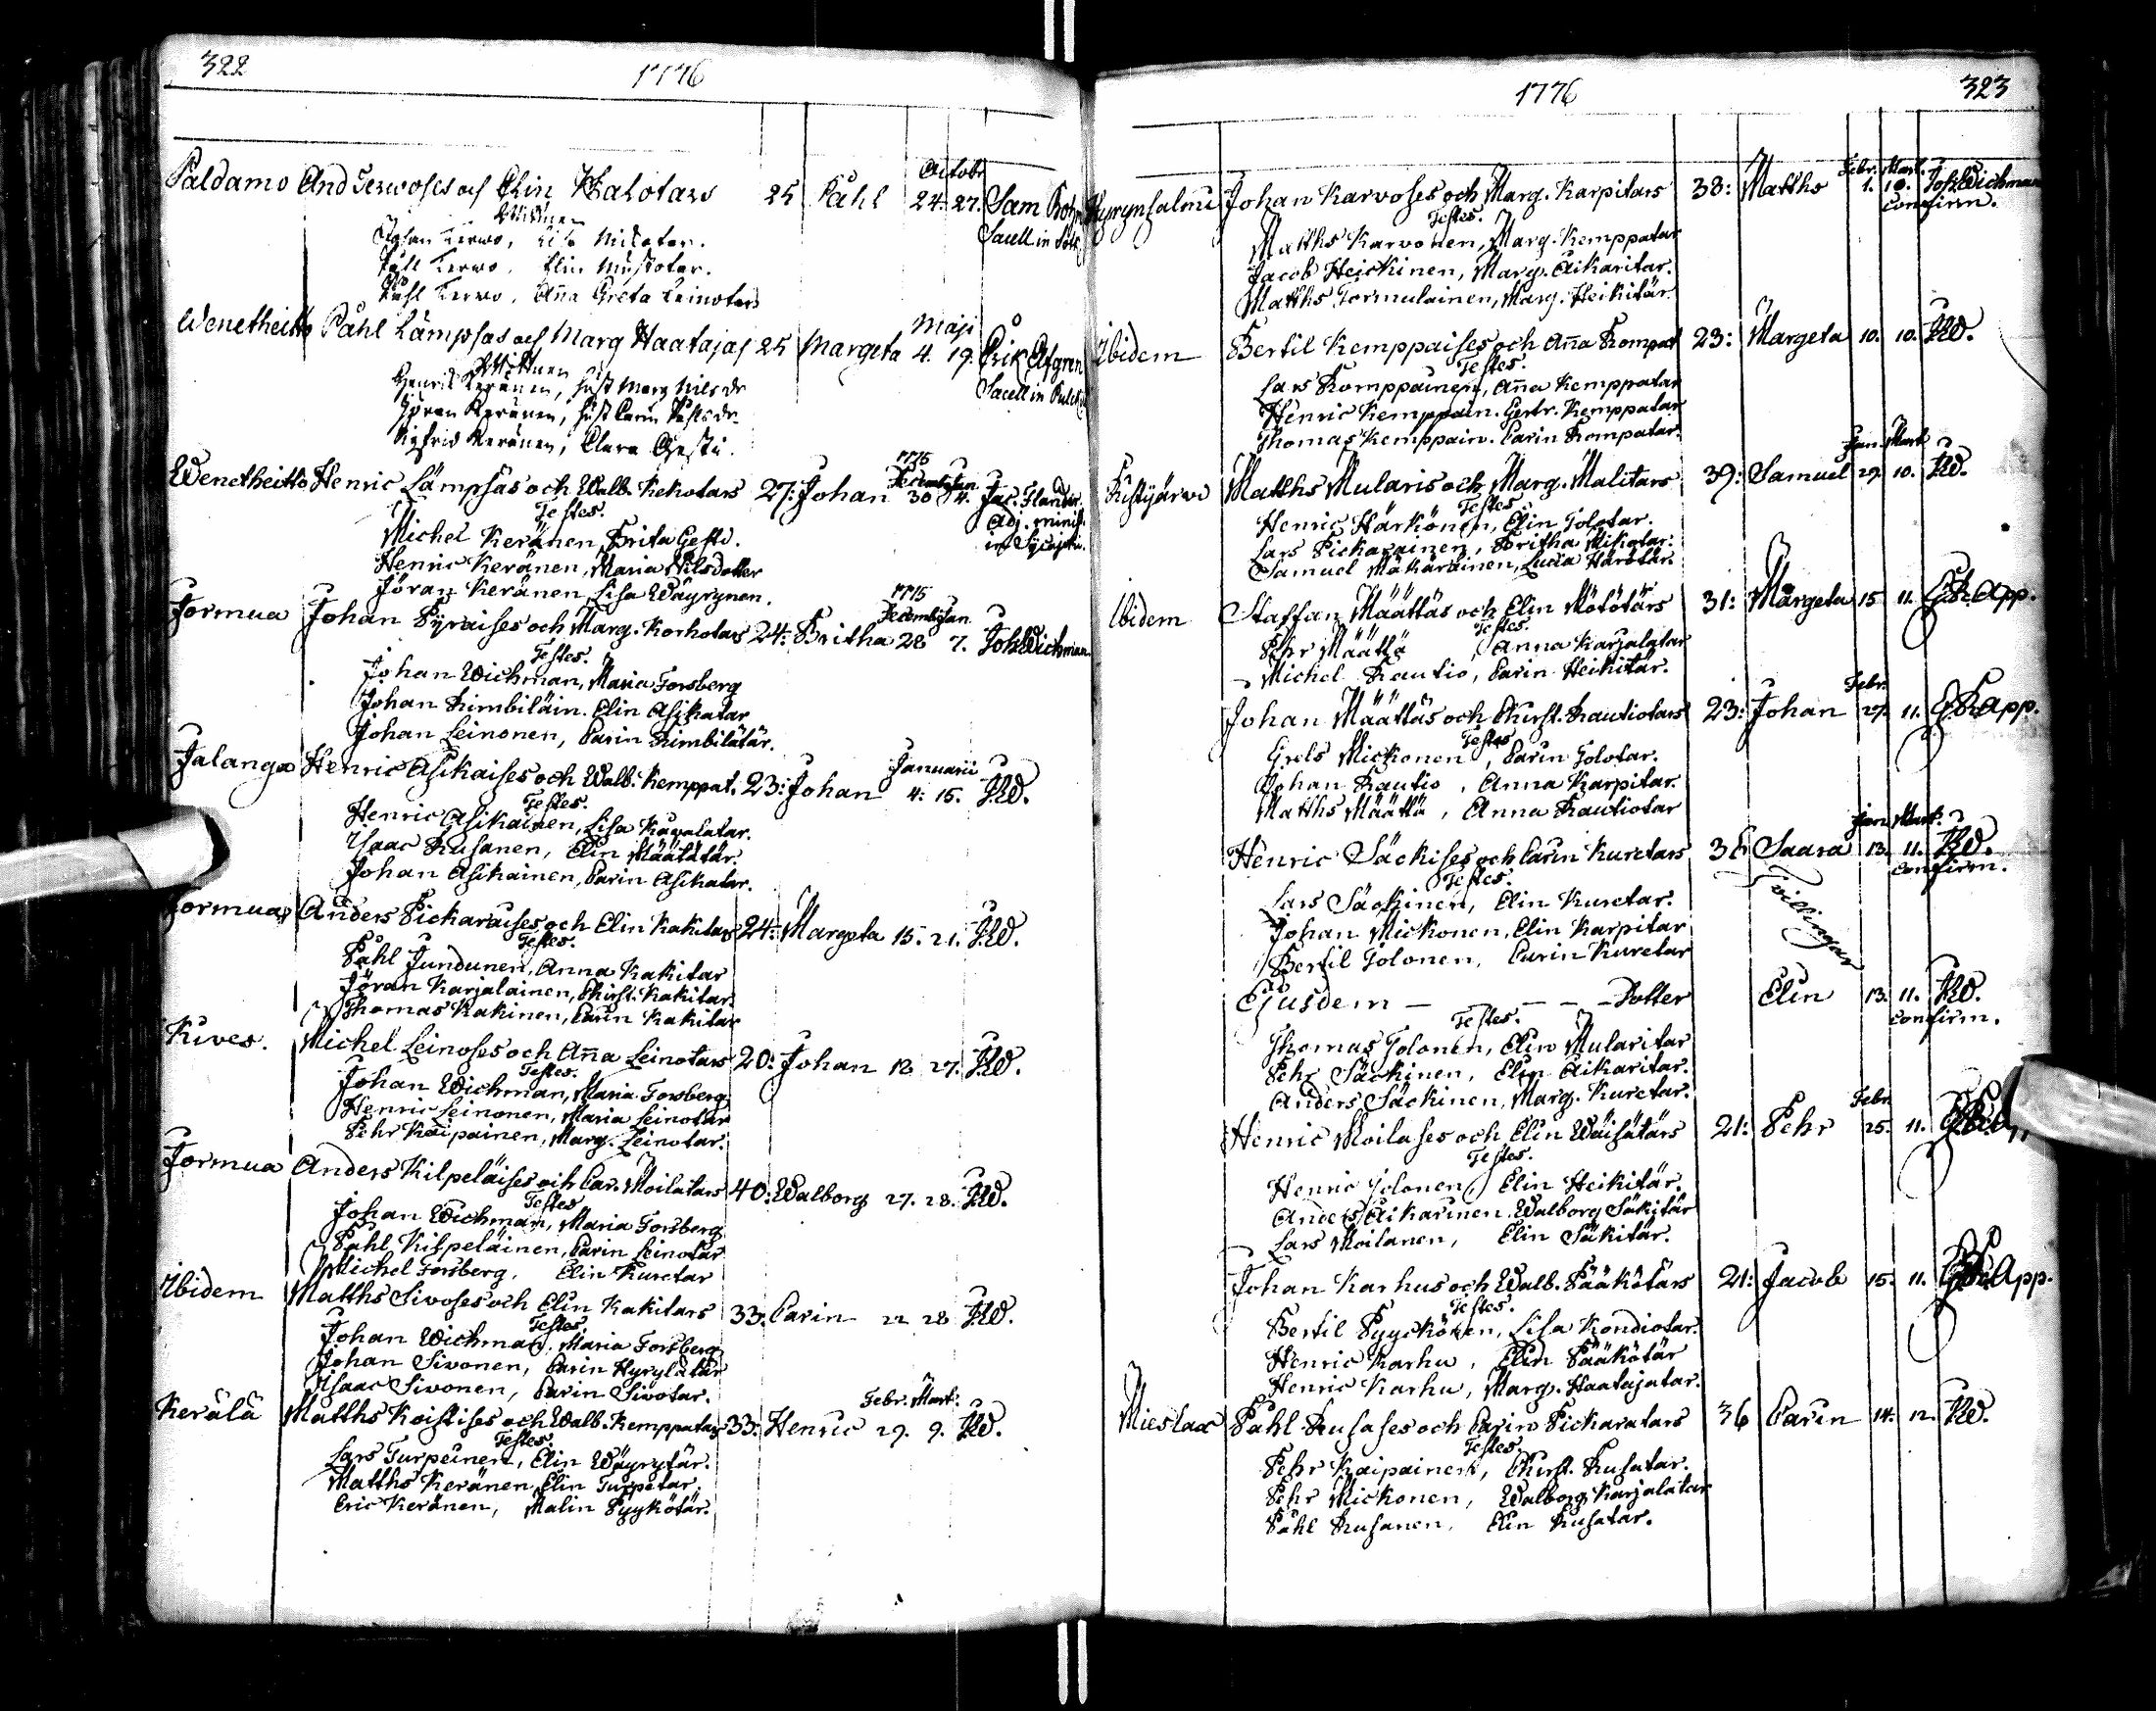 322
1776
Octobr
Paldamo And Terwoses och Elin Kalotars 25 Påhl 24. 27. Sam
Wittnen
Johan Kerwo, Lisa Mikotar.
Påll Kerwo, Elin Mustotar.
Påhl Kerwo, Aña Greta Leinotar
Maji
Wenetheitto Påhl Lämpsas och Marg Haatajas 25 Margeta 4. 19. Erik
Wittnen
Henrik Keränen, hust Marg Nils dr
Jöran Keränen, hust Carin Påhls dr
Sigfrid Keränen, Clara Gesti.
1775
Decemb. Jan.
Wenetheitto Henric Lämpsas och Walb. Kekotars 27: Johan 30 14. Jac. Flander.
Testes. Adj. minist.
Michel Keränen, Brita Gesti.
Henric Keränen, Maria Nilsdotter
Jöran Keränen, Lisa Wäyrynen.
1775
Decemb Jan
Jormua Johan Pyraises och Marg. Korhotars 24: Britha 28 7. Joh Wichman
Testes.
Johan Wichman, Maria Forsberg
Johan Rimbiläin. Elin Asikatar
Johan Leinonen, Carin Rimbilätär.
Januarii
Jalanga Henric Asikaises och Walb. Kemppat. 23: Johan 4: 15. JW.
Testes.
Henric Asikainen, Lisa Karalatar.
Isaac Rusanen, Elin Määtätär.
Johan Asikainen, Carin Asikatar.
Jormua Anders Pickaraises och Elin Kakitars 24: Margeta 15. 21. JW.
Testes.
Påhl Jundunen, Anna Kakitar
Jöran Karjalainen, Christ. Kakitar.
Thomas Kakinen, Carin Kakitar
Kives. Michel Leinoses och Aña Leinotars 20: Johan 18 27. JW.
Testes.
Johan Wichman, Maria Forsberg.
Henric Leinonen, Maria Leinotar
Pehr Kaipainen, Marg. Leinotar.
Jormua Anders Kilpeläises och Car. Moilatars 40: Walborg 27. 28. JW.
Testes
Johan Wichman, Maria Forsberg
Påhl Kilpeläinen, Carin Leinotar
Michel Forsberg, Elin Kuretar
Ibidem Matths Sivoses och Elin Kakitars 33: Carin 22 28 JW.
Testes
Johan Wichman, Maria Forsberg
Johan Sivonen, Carin Hyrylätär
Isaac Sivonen, Carin Sivotar.
Febr. Mart.
Kerälä Matths Koistises och Walb. Kemppatars 33: Henric 29. 9. JW.
Testes.
Lars Turpeinen, Elin Wäyrytär.
Matths Keränen, Elin Turpetar.
Eric Keränen, Malin Pyykötär.
1776
323
Febr. Mart.
Hyrynsalmi Johan Karvoses och Marg. Karpitars 38: Matths 1. 10. Joh Wichman
Testes. confirm.
Matths Karvonen, Marg. Kemppatar
Jacob Heickinen, Marg. Aikaritar.
Matths Tormulainen, Marg. Heikitär.
Ibidem Bertil Kemppaises och Aña Kompat 23: Margeta 10. 10. JW.
Testes.
Lars Komppainen, Aña Kemppatar
Henric Kemppain. Gertr. Kemppatar
Thomas Kemppain. Carin Kompatar.
Jan. Mart
Ristijärwi Matths Mularis och Marg. Malitars 39: Samuel 29. 10. JW.
Testes.
Henric Härkönen, Elin Tolotar.
Lars Pickarainen, Britha Mikotar.
Samuel Mäkäräinen, Lucia Härötär.
Ibidem Staffan Määttäs och Elin Mötötärs 31: Margeta 15 11. App.
Testes.
Pehr Määttä, Anna Karjalatar
Michel Rautio, Carin Heikitär.
Febr.
Johan Määttäs och Christ. Rautiotars 23: Johan 27. 11. App.
Testes
Grels Mickonen, Carin Tolotar.
Johan Rautio, Anna Karpitar.
Matths Määttä, Anna Rautiotar
Jan. Mart.
Henric Säckises och Carin Kuretars 36 Saara 13. 11. JW.
Testes. confirm.
Lars Säckinen, Elin Kuretar.
Johan Mickonen, Elin Karpitar
Bertil Tolonen, Carin Kuretar
Tvillingar
Ejusdem — — — — Dotter Elin 13. 11. JW.
Testes. confirm.
Thomas Tolonen, Elin Mularitar
Pehr Säckinen, Elin Aikaritar.
Anders Säckinen, Marg. Kuretar.
Febr.
Henric Moilases och Elin Wäisätärs 21: Pehr 25. 11.
Testes.
Henric Tolonen, Elin Heikitär.
Anders Aikarinen, Walborg Säkitär
Lars Moilanen, Elin Säkitär.
Johan Karhus och Walb. Pääkötärs 21: Jacob 15. 11. App.
Testes.
Bertil Pyyckönen, Lisa Kondiotar.
Henric Karhu, Elin Pääkötär
Henric Karhu, Marg. Haatajatar.
Mieslax Påhl Rusases och Carin Pickaratars 36 Carin 14. 12. JW.
Testes.
Pehr Kaipainen, Christ. Rusatar.
Pehr Mickonen, Walborg Karjalatar
Påhl Rusanen, Elin Rusatar.